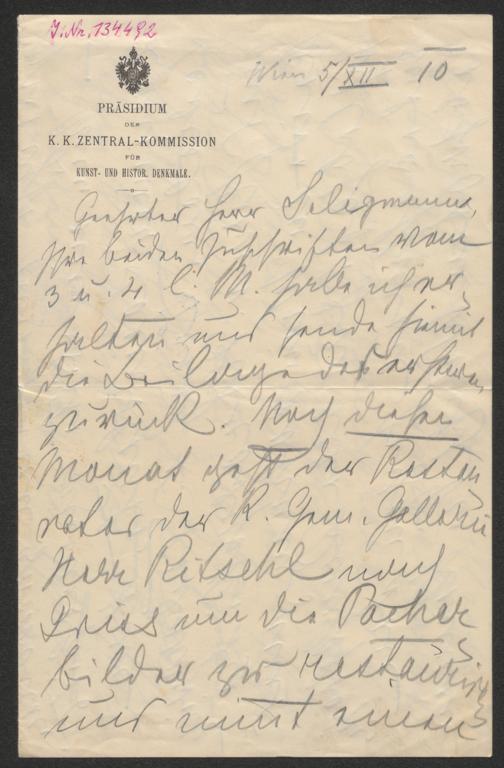 J.Nr. 134492
PRÄSIDIUM
DER
K. K. ZENTRAL-KOMMISSION
FÜR
KUNST- UND HISTOR. DENKMALE.
Wien 5/XII 10
Geehrter Herr Seligmann,
Ihre beiden Zuschriften vom
3 u. 4 l. M. habe ich er-
halten und sende hiemit
die Beilage des ersteren
zurück. Noch diesen
Monat geht der Restau
rator der K. Gem. Gallerie
Herr Ritschl nach
Gries um die Pacher
bilder zu restaurieren
und nimt einen